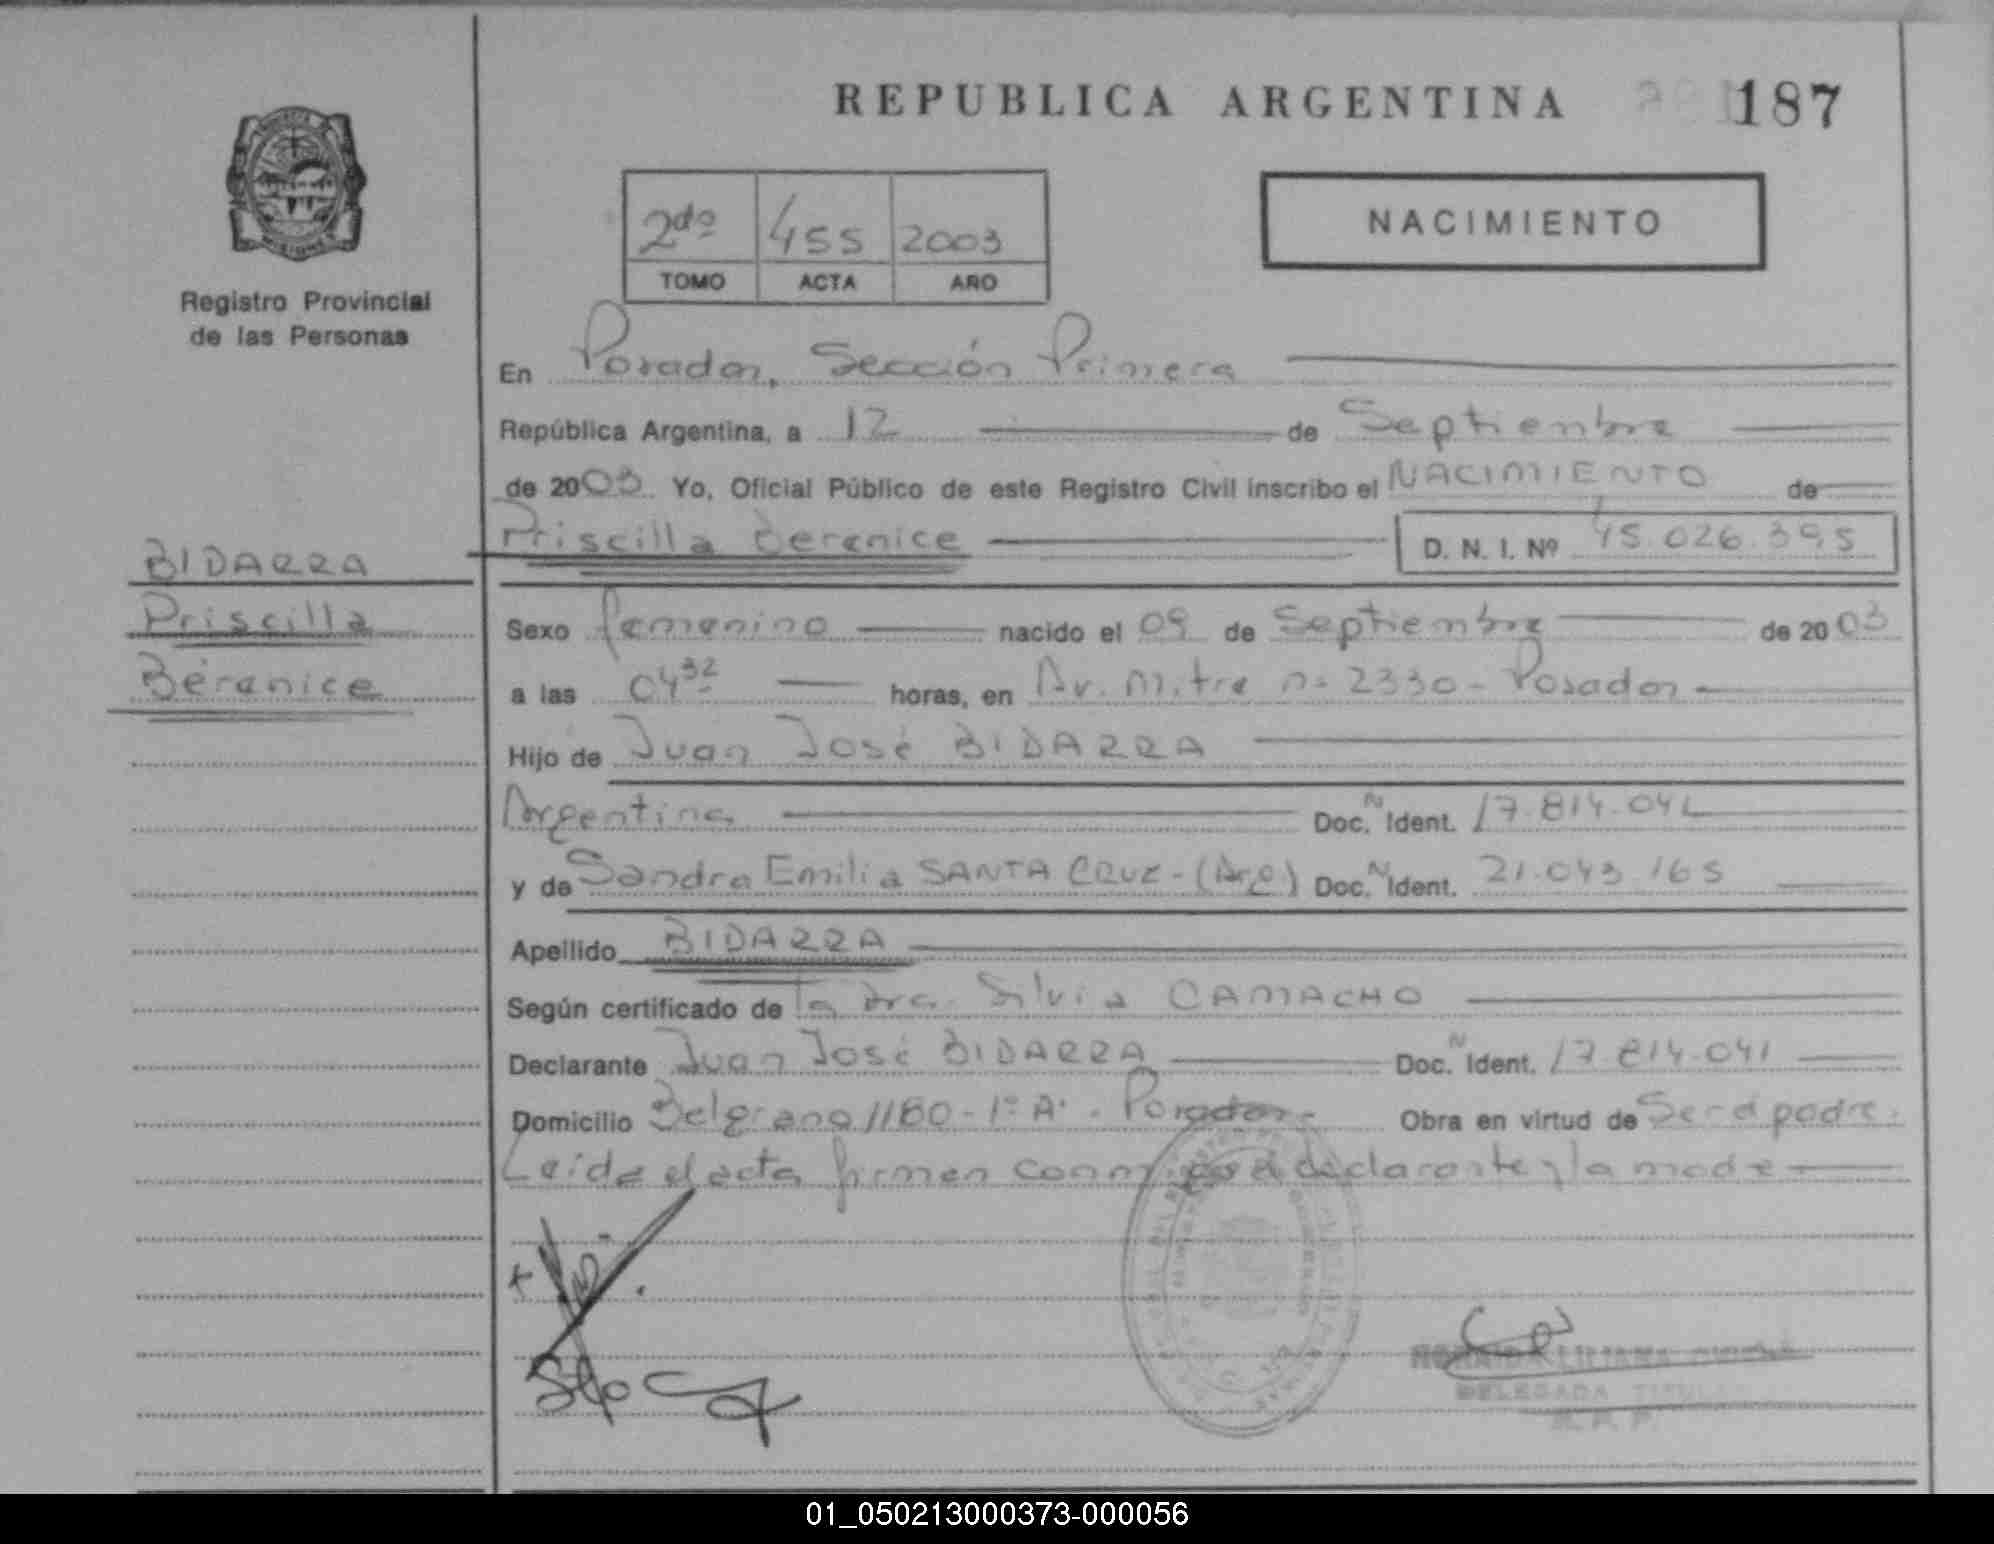 REPUBLICA ARGENTINA 187
2do 455 2003
TOMO ACTA AÑO
NACIMIENTO
Registro Provincial
de las Personas
En Posadas, Sección Primera
República Argentina, a 12 de Septiembre
de 2003 Yo, Oficial Público de este Registro Civil inscribo el NACIMIENTO de
Priscilla Berenice D. N. I. Nº 45.026.395
BIDARRA
Priscilla
Berenice
Sexo femenino nacido el 09 de Septiembre de 2003
a las 04 32 horas, en Av. Mitre nº 2330 - Posadas
Hijo de Juan José BIDARRA
Argentina Doc. N Ident. 17.814.041
y de Sandra Emilia SANTA CRUZ - (Arg) Doc. N Ident. 21.043.165
Apellido BIDARRA
Según certificado de la Dra. Silvia CAMACHO
Declarante Juan José BIDARRA Doc. N Ident. 17.814.041
Domicilio Belgrano 1180 - 1º A. Posadas. Obra en virtud de Ser el padre.
Leída el acta firman conmigo el declarante y la madre
LILIANA
DELEGADA TITULAR
R. P. P.
01_050213000373-000056